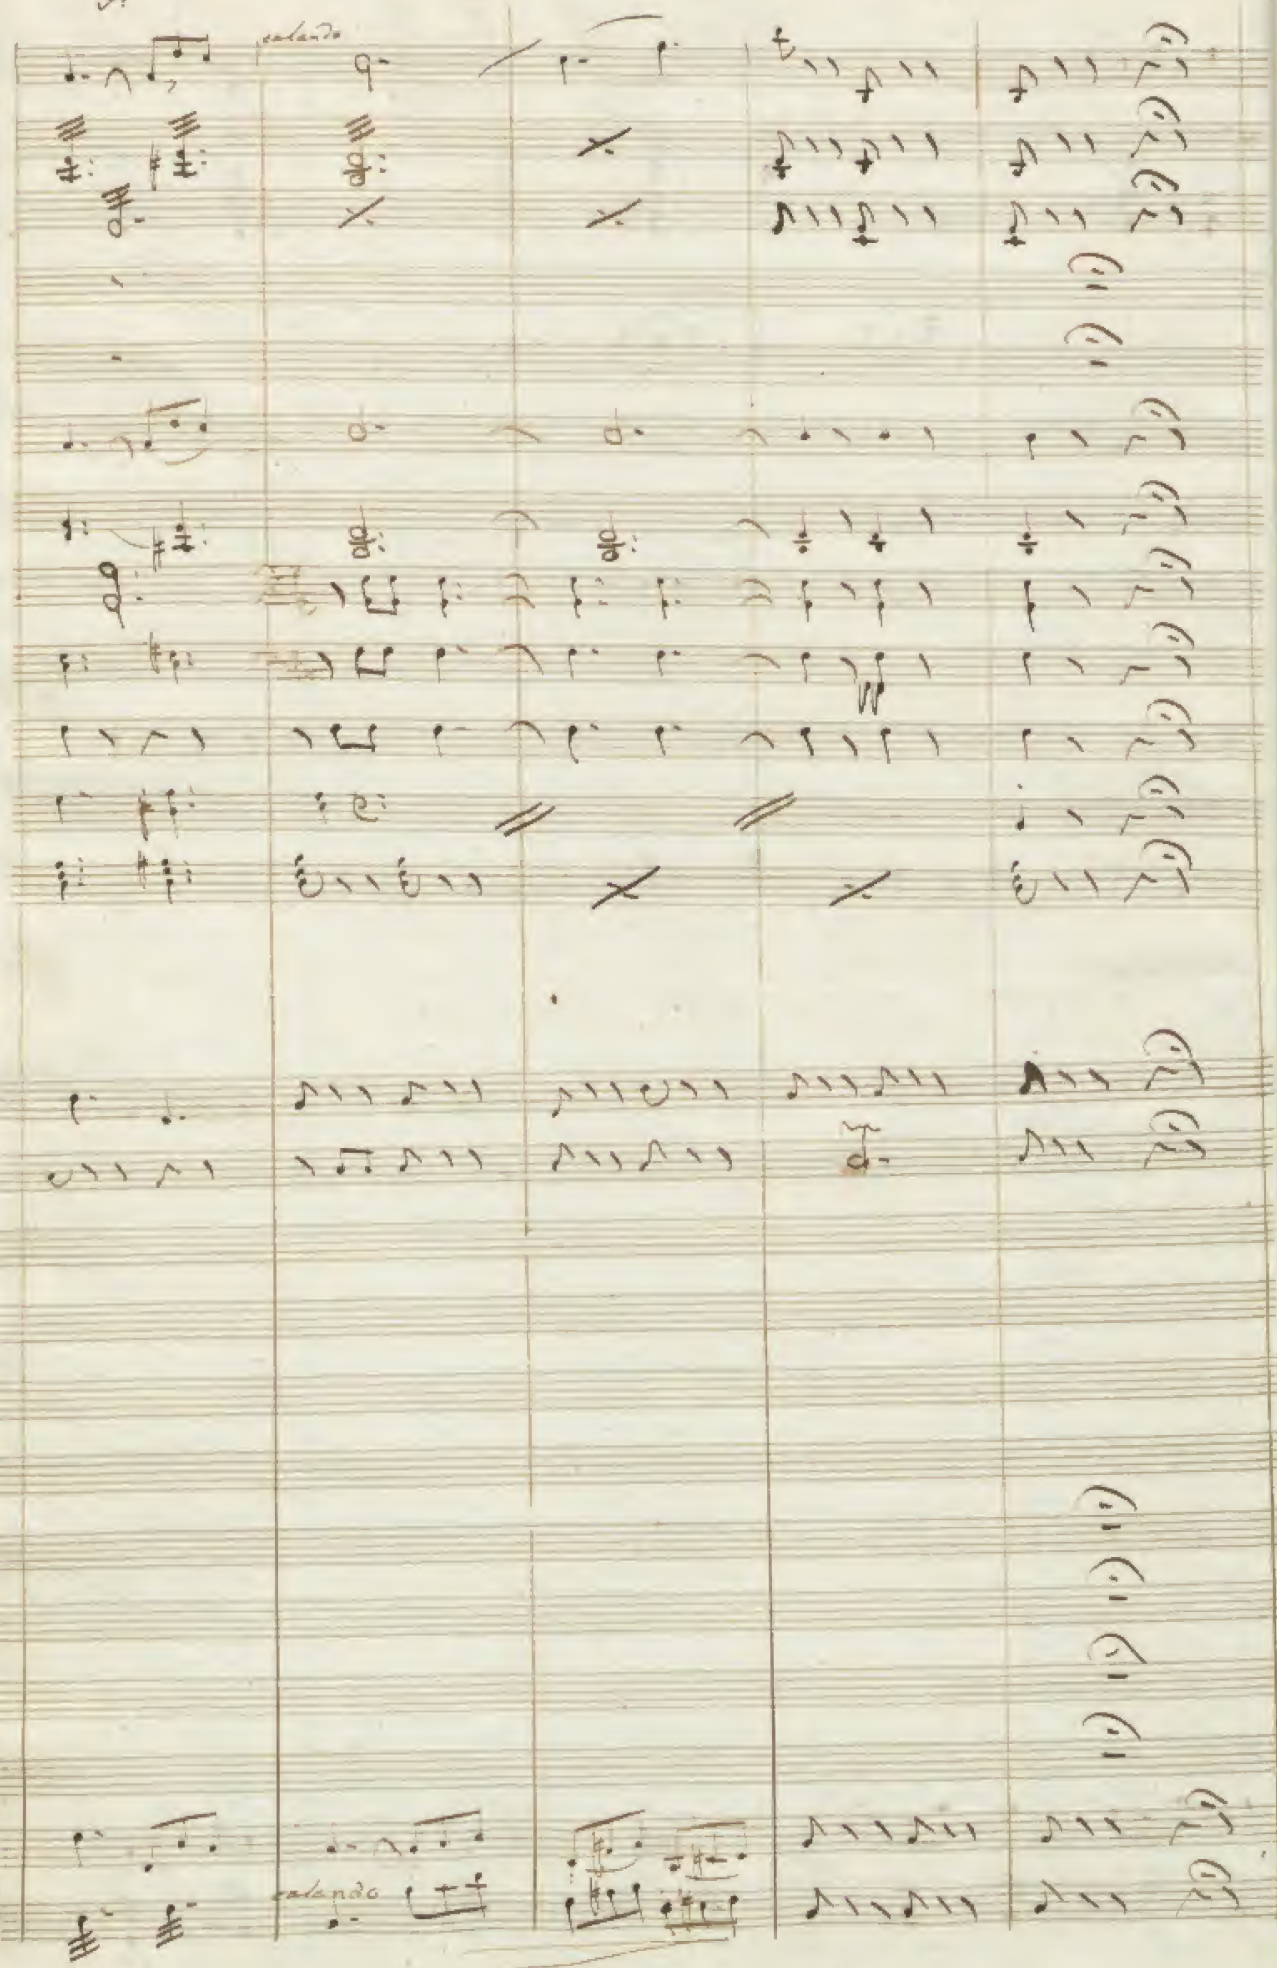 calando
calando